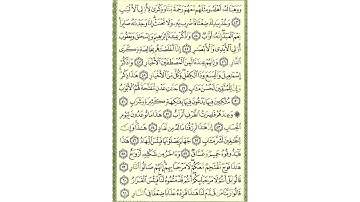 وَوَهَبْنَا لَهُۥٓ أَهْلَهُۥ وَمِثْلَهُم مَّعَهُمْ رَحْمَةً مِّنَّا وَذِكْرَىٰ لِأُو۟لِى ٱلْأَلْبَٰبِ
٤٣ وَخُذْ بِيَدِكَ ضِغْثًا فَٱضْرِب بِّهِۦ وَلَا تَحْنَثْ إِنَّا وَجَدْنَٰهُ صَابِرًا
نِّعْمَ ٱلْعَبْدُ إِنَّهُۥٓ أَوَّابٌ ٤٤ وَٱذْكُرْ عِبَٰدَنَآ إِبْرَٰهِيمَ وَإِسْحَٰقَ وَيَعْقُوبَ
أُو۟لِى ٱلْأَيْدِى وَٱلْأَبْصَٰرِ ٤٥ إِنَّآ أَخْلَصْنَٰهُم بِخَالِصَةٍ ذِكْرَى
ٱلدَّارِ ٤٦ وَإِنَّهُمْ عِندَنَا لَمِنَ ٱلْمُصْطَفَيْنَ ٱلْأَخْيَارِ ٤٧ وَٱذْكُرْ
إِسْمَٰعِيلَ وَٱلْيَسَعَ وَذَا ٱلْكِفْلِ وَكُلٌّ مِّنَ ٱلْأَخْيَارِ ٤٨ هَٰذَا ذِكْرٌ
وَإِنَّ لِلْمُتَّقِينَ لَحُسْنَ مَـَٔابٍ ٤٩ جَنَّٰتِ عَدْنٍ مُّفَتَّحَةً لَّهُمُ ٱلْأَبْوَٰبُ
٥٠ مُتَّكِـِٔينَ فِيهَا يَدْعُونَ فِيهَا بِفَٰكِهَةٍ كَثِيرَةٍ وَشَرَابٍ ٥١
۞ وَعِندَهُمْ قَٰصِرَٰتُ ٱلطَّرْفِ أَتْرَابٌ ٥٢ هَٰذَا مَا تُوعَدُونَ لِيَوْمِ
ٱلْحِسَابِ ٥٣ إِنَّ هَٰذَا لَرِزْقُنَا مَا لَهُۥ مِن نَّفَادٍ ٥٤ هَٰذَا وَإِنَّ
لِلطَّٰغِينَ لَشَرَّ مَـَٔابٍ ٥٥ جَهَنَّمَ يَصْلَوْنَهَا فَبِئْسَ ٱلْمِهَادُ ٥٦ هَٰذَا
فَلْيَذُوقُوهُ حَمِيمٌ وَغَسَّاقٌ ٥٧ وَءَاخَرُ مِن شَكْلِهِۦٓ أَزْوَٰجٌ ٥٨
هَٰذَا فَوْجٌ مُّقْتَحِمٌ مَّعَكُمْ لَا مَرْحَبًۢا بِهِمْ إِنَّهُمْ صَالُوا۟ ٱلنَّارِ ٥٩
قَالُوا۟ بَلْ أَنتُمْ لَا مَرْحَبًۢا بِكُمْ أَنتُمْ قَدَّمْتُمُوهُ لَنَا فَبِئْسَ ٱلْقَرَارُ ٦٠
قَالُوا۟ رَبَّنَا مَن قَدَّمَ لَنَا هَٰذَا فَزِدْهُ عَذَابًا ضِعْفًا فِى ٱلنَّارِ ٦١